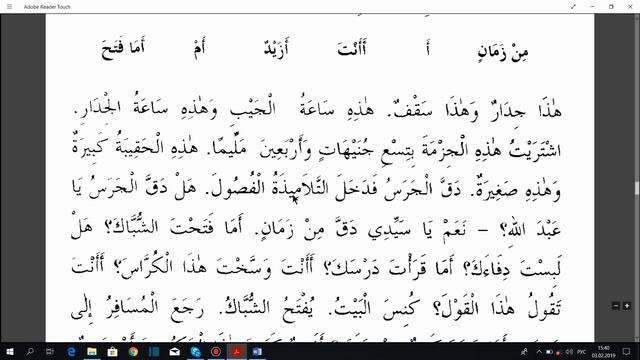 Adobe Reader Touch
مِنْ زَمَانٍ أَ أَأَنْتَ أَزَيْدٌ أَمْ أَمَا فَتَحَ
هٰذَا جِدَارٌ وَهٰذَا سَقْفٌ. هٰذِهِ سَاعَةُ الْجَيْبِ وَهٰذِهِ سَاعَةُ الْجِدَارِ.
اشْتَرَيْتُ هٰذِهِ الْجَزْمَةَ بِتِسْعِ جُنَيْهَاتٍ وَأَرْبَعِينَ مَلِّيمًا. هٰذِهِ الْحَقِيبَةُ كَبِيرَةٌ
وَهٰذِهِ صَغِيرَةٌ. دَقَّ الْجَرَسُ فَدَخَلَ التَّلَامِيذَةُ الْفُصُولَ. هَلْ دَقَّ الْجَرَسُ يَا
عَبْدَ اللهِ؟ – نَعَمْ يَا سَيِّدِي دَقَّ مِنْ زَمَانٍ. أَمَا فَتَحْتَ الشُّبَّاكَ؟ هَلْ
لَبِسْتَ دِفَاءَكَ؟ أَمَا قَرَأْتَ دَرْسَكَ؟ أَأَنْتَ وَسَّخْتَ هٰذَا الْكُرَّاسَ؟ أَأَنْتَ
تَقُولُ هٰذَا الْقَوْلَ؟ كُنِسَ الْبَيْتُ. يُفْتَحُ الشُّبَّاكُ. رَجَعَ الْمُسَافِرُ إِلَى
РУС
15:40
03.02.2019